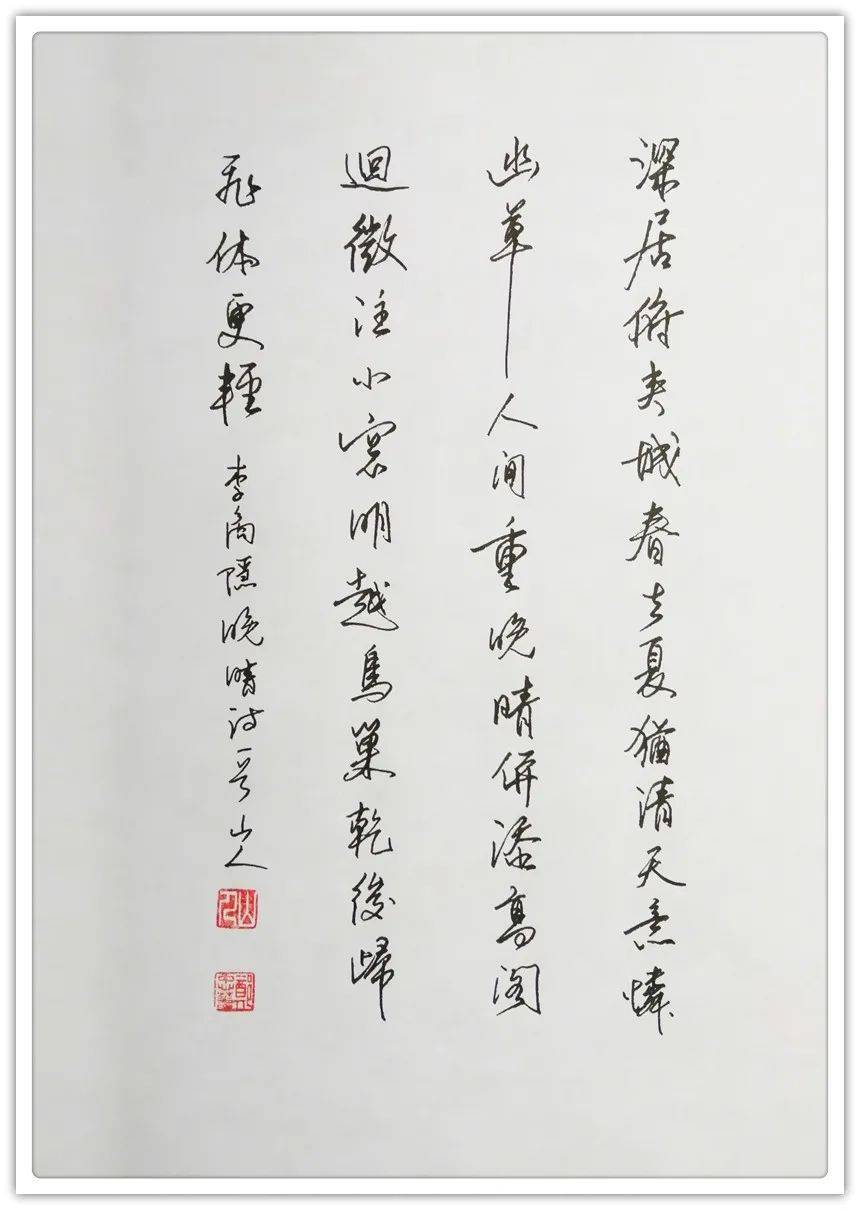 深居俯夹城春去夏猶清天意憐
幽草人间重晚晴併添高阁
迴微注小窓明越鳥巢乾後歸
飛体更輕
李商隱晚晴詩一首山人